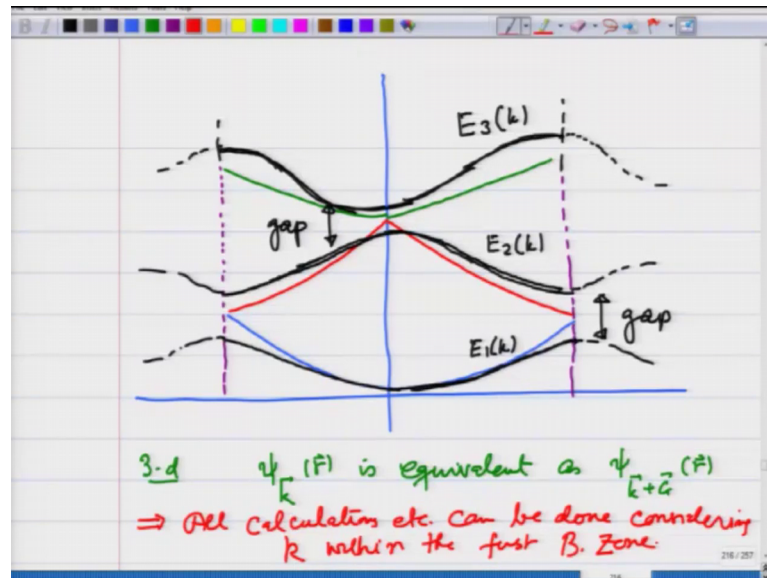 E₃(k)
gap
E₂(k)
gap
E₁(k)
3-d ψ_k⃗ (r⃗) is equivalent as ψ_k⃗+G⃗ (r⃗)
⇒ All calculation etc. can be done considering
k within the first B. Zone.
216 / 257